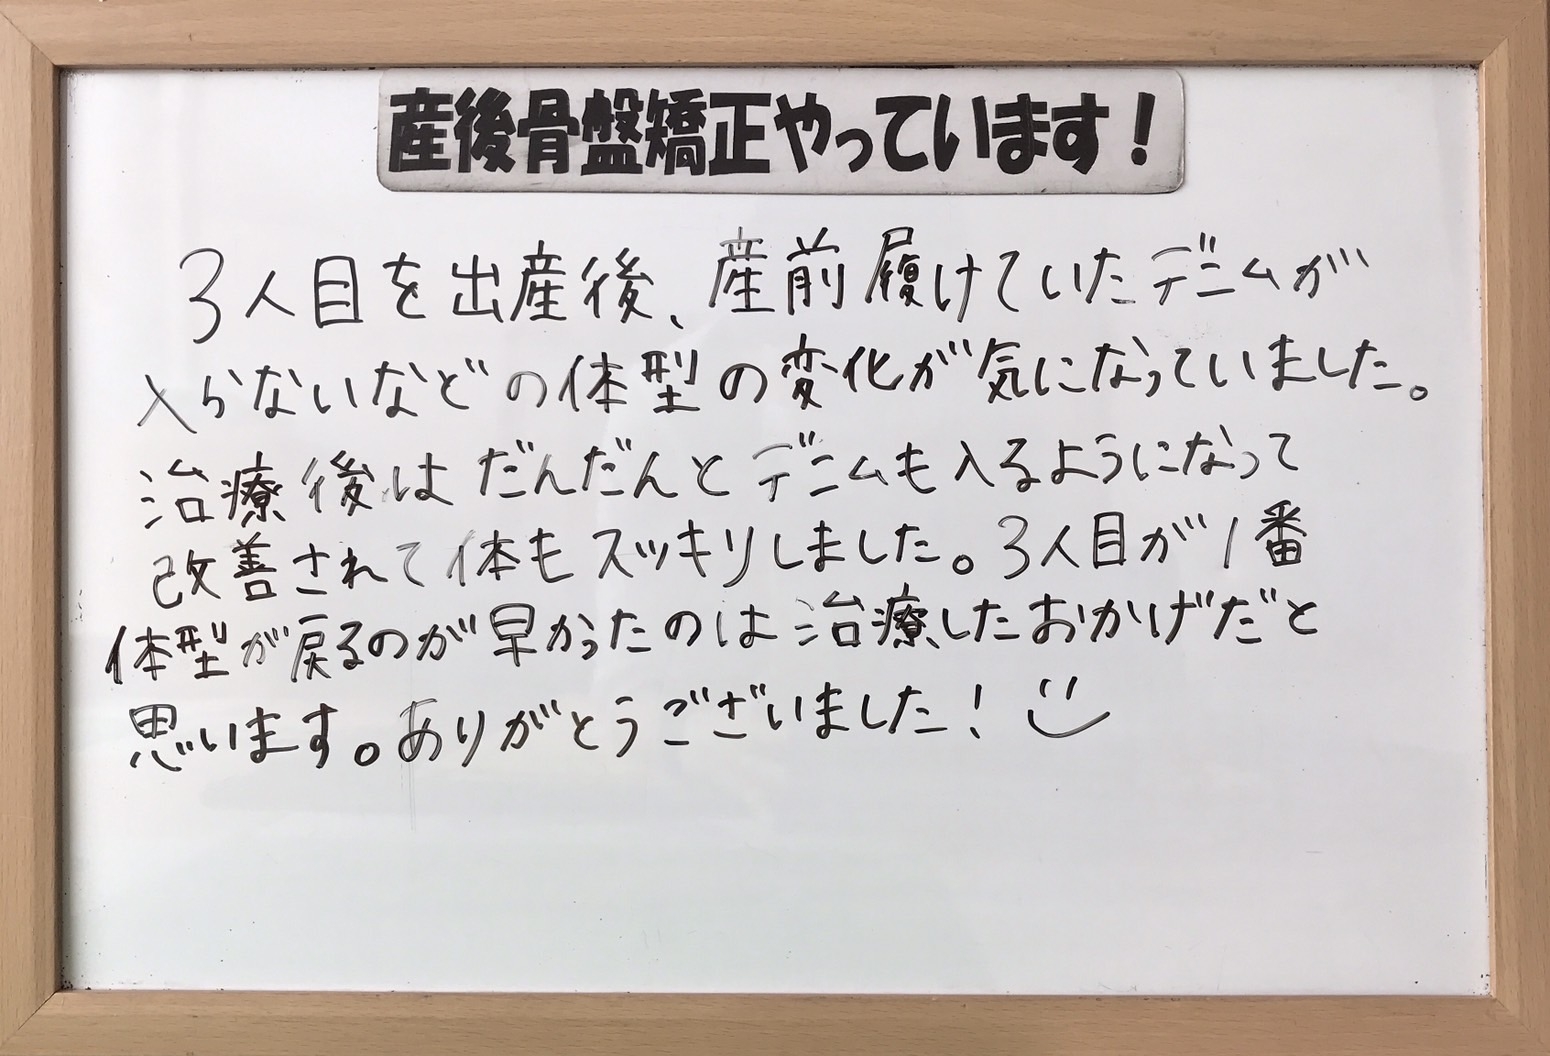 産後骨盤矯正やっています!
3人目を出産後、産前履けていたデニムが
入らないなどの体型の変化が気になっていました。
治療後はだんだんとデニムも入るようになって
改善されて体もスッキリしました。3人目が1番
体型が戻るのが早かったのは治療したおかげだと
思います。ありがとうございました!